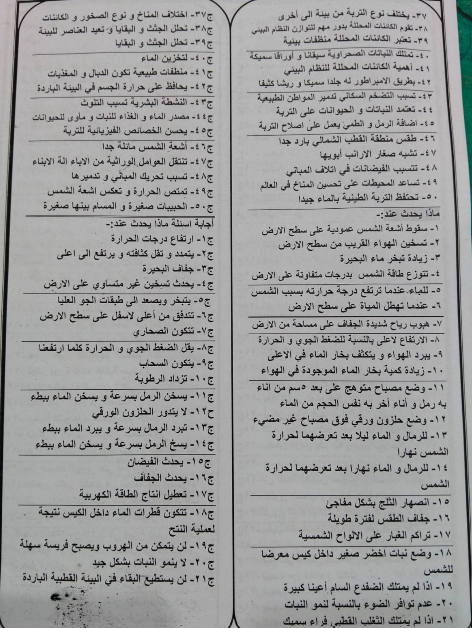 ٣٧- يختلف نوع التربة من بيئة الى أخرى
٣٨- تقوم الكائنات المحللة بدور مهم لتتوازن النظام البيئي
٣٩- تعتبر الكائنات المحللة منظفات بيئية
٤٠- تمتلك النباتات الصحراوية سيقانا و أوراقا سميكة
٤١- أهمية الكائنات المحللة للنظام البيئي
٤٢- بطريق الامبراطور له جلدا سميكا و ريشا كثيفا
٤٣- تسبب التضخم السكاني تدمير المواطن الطبيعية
٤٤- تعتمد النباتات و الحيوانات على التربة
٤٥- اضافة الرمل و الطمي يعمل على اصلاح التربة
٤٦- طقس منطقة القطب الشمالي بارد جدا
٤٧- تشبه صغار الارانب أبويها
٤٨- تتسبب الفيضانات في اتلاف المباني
٤٩- تساعد المحيطات على تحسين المناخ في العالم
٥٠- تحتفظ التربة الطينية بالماء جيدا
ماذا يحدث عند:-
١- سقوط أشعة الشمس عمودية على سطح الارض
٢- تسخين الهواء القريب من سطح الارض
٣- زيادة تبخر ماء البحيرة
٤- تتوزع طاقة الشمس بدرجات متفاوتة على الارض
٥- للماء عندما ترتفع درجة حرارته بسبب الشمس
٦- عندما تهطل المياة على سطح الارض
٧- هبوب رياح شديدة الجفاف على مساحة من الارض
٨- الارتفاع لاعلى بالنسبة للضغط الجوي و الحرارة
٩- يبرد الهواء و يتكثف بخار الماء في الاعلى
١٠- زيادة كمية بخار الماء الموجودة في الهواء
١١- وضع مصباح متوهج على بعد ٥سم من اناء
به رمل و أناء أخر به نفس الحجم من الماء
١٢- وضع حلزون ورقي فوق مصباح غير مضيء
١٣- للرمال و الماء ليلا بعد تعرضهما لحرارة
الشمس نهارا
١٤- للرمال و الماء نهارا بعد تعرضهما لحرارة
الشمس
١٥- انصهار الثلج بشكل مفاجئ
١٦- جفاف الطقس لفترة طويلة
١٧- تراكم الغبار على الالواح الشمسية
١٨- وضع نبات اخضر صغير داخل كيس معرضا
للشمس
١٩- اذا لم يمتلك الضفدع السام أعينا كبيرة
٢٠- عدم توافر الضوء بالنسبة لنمو النبات
٢١- اذا لم يمتلك الثعلب القطبي فراء سميك
ج٣٧- اختلاف المناخ و نوع الصخور و الكائنات
ج٣٨- تحلل الجثث و البقايا و تعيد العناصر للبيئة
ج٣٩- تحلل الجثث و البقايا
ج٤٠- لتخزين الماء
ج٤١- منظفات طبيعية تكون الدبال و المغذيات
ج٤٢- يحافظ على حرارة الجسم في البيئة الباردة
ج٤٣- الانشطة البشرية تسبب التلوث
ج٤٤- مصدر الماء و الغذاء للنبات و مأوى للحيوانات
ج٤٥- يحسن الخصائص الفيزيائية للتربة
ج٤٦- أشعة الشمس مائلة جدا
ج٤٧- تنتقل العوامل الوراثية من الاباء الة الابناء
ج٤٨- تسبب تحريك المباني و تدميرها
ج٤٩- تمتص الحرارة و تعكس اشعة الشمس
ج٥٠- الحبيبات صغيرة و المسام بينها صغيرة
أجابة اسئلة ماذا يحدث عند:-
ج١- ارتفاع درجات الحرارة
ج٢- يتمدد و تقل كثافته و يرتفع الى اعلى
ج٣- جفاف البحيرة
ج٤- يحدث تسخين غير متساوي على الارض
ج٥- يتبخر ويصعد الى طبقات الجو العليا
ج٦- تتدفق من أعلى لاسفل على سطح الارض
ج٧- تتكون الصحاري
ج٨- يقل الضغط الجوي و الحرارة كلما ارتفعنا
ج٩- يتكون السحاب
ج١٠- تزداد الرطوبة
ج١١- يسخن الرمل بسرعة و يسخن الماء ببطء
ج١٢- لا يتدور الحلزون الورقي
ج١٣- تبرد الرمال بسرعة و يبرد الماء ببطء
ج١٤- يسخ الرمل بسرعة و يسخن الماء ببطء
ج١٥- يحدث الفيضان
ج١٦- يحدث الجفاف
ج١٧- تعطيل انتاج الطاقة الكهربية
ج١٨- تتكون قطرات الماء داخل الكيس نتيجة
لعملية النتح
ج١٩- لن يتمكن من الهروب ويصبح فريسة سهلة
ج٢٠- لا ينمو النبات بشكل جيد
ج٢١- لن يستطيع البقاء في البيئة القطبية الباردة